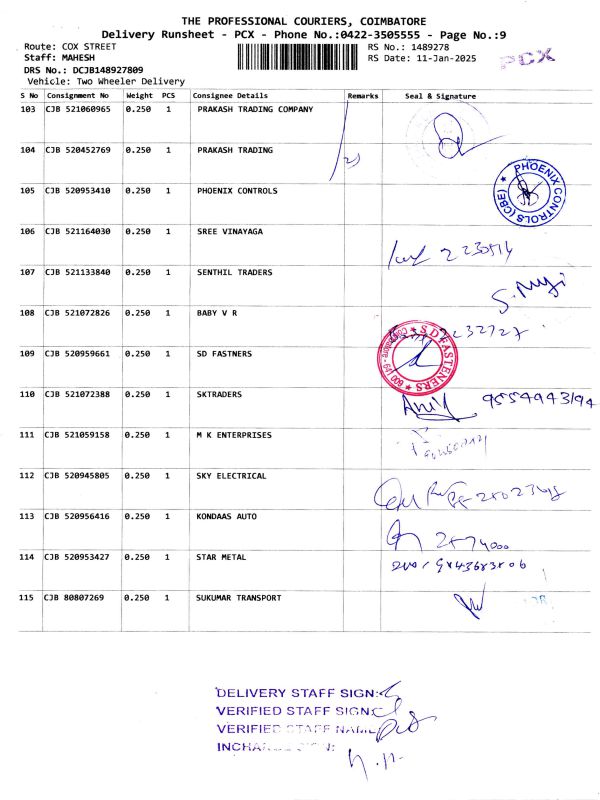 THE PROFESSIONAL COURIERS, COIMBATORE
Delivery Runsheet - PCX - Phone No.:0422-3505555 - Page No.:9
Route: COX STREET RS No.: 1489278
Staff: MAHESH RS Date: 11-Jan-2025 PCX
DRS No.: DCJB148927809
Vehicle: Two Wheeler Delivery
S No Consignment No Weight PCS Consignee Details Remarks Seal & Signature
103 CJB 521060965 0.250 1 PRAKASH TRADING COMPANY
104 CJB 520452769 0.250 1 PRAKASH TRADING
105 CJB 520953410 0.250 1 PHOENIX CONTROLS
PHOENIX CONTROLS (CBE)
106 CJB 521164030 0.250 1 SREE VINAYAGA
107 CJB 521133840 0.250 1 SENTHIL TRADERS
108 CJB 521072826 0.250 1 BABY V R
109 CJB 520959661 0.250 1 SD FASTNERS
SD FASTENERS
110 CJB 521072388 0.250 1 SKTRADERS
9554943194
111 CJB 521059158 0.250 1 M K ENTERPRISES
112 CJB 520945805 0.250 1 SKY ELECTRICAL
113 CJB 520956416 0.250 1 KONDAAS AUTO
114 CJB 520953427 0.250 1 STAR METAL
115 CJB 80807269 0.250 1 SUKUMAR TRANSPORT
DELIVERY STAFF SIGN:
VERIFIED STAFF SIGN:
VERIFIED STAFF NAME
INCHARGE SIGN: